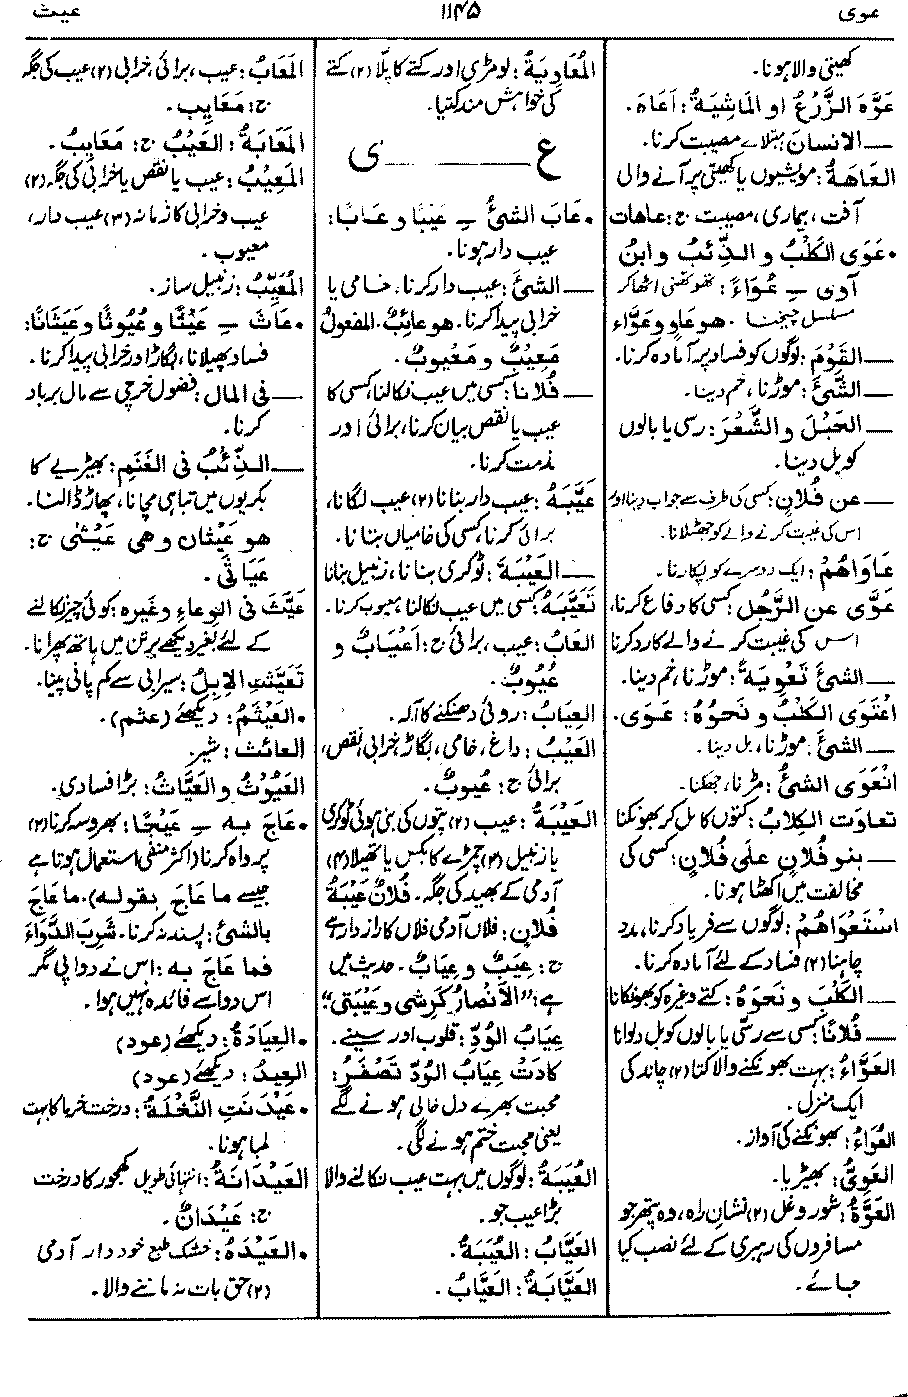 عوی
۱۱۴۵
عیث
کھیتی والا ہونا.
عَوَّهَ الزَّرْعُ او الْمَاشِيَةُ : اَعَاهَ.
— الانسان : مبتلائے مصیبت کرنا.
العَاهَةُ : مویشیوں یا کھیتی پر آنے والی
آفت، بیماری، مصیبت ج : عاهات
• عَوَى الكَلْبُ و الذِّئْبُ و ابنُ
آوى ــِ عُوَاءً : تھوتھنی اٹھا کر
مسلسل چیخنا. هو عاوٍ و عَوَّاء
— القَوْمَ : لوگوں کو فساد پر آمادہ کرنا.
— الشَّیْءَ : موڑنا، خم دینا.
— الحَبْلَ و الشَّعْرَ : رسی یا بالوں
کو بل دینا.
— عن فُلَانٍ : کسی کی طرف سے جواب دینا اور
اس کی غیبت کرنے والے کو جھٹلانا.
عَاوَاهُمْ : ایک دوسرے کو پکارنا.
عَوَّى عن الرَّجُلِ : کسی کا دفاع کرنا،
اس کی غیبت کرنے والے کا رد کرنا
— الشیءَ تَعْوِيَةً : موڑنا، خم دینا.
اعْتَوَى الكَلْبُ و نَحْوُهُ : عَوَى.
— الشیءَ : موڑنا، بل دینا.
انْعَوَى الشیءُ : مڑنا، جھکنا.
تعاوَت الكِلَابُ : کتوں کا مل کر بھونکنا
— بنو فُلَانٍ علی فُلَانٍ : کسی کی
مخالفت میں اکٹھا ہونا.
اسْتَعْوَاهُمْ : لوگوں سے فریاد کرنا، مدد
چاہنا (۲) فساد کے لئے آمادہ کرنا.
— الكَلْبَ و نَحْوَهُ : کتے وغیرہ کو بھونکانا
— فُلَانًا : کسی سے رسّی یا بالوں کو بل دلوانا
العَوَّاءُ : بہت بھونکنے والا کتا (۲) چاند کی
ایک منزل.
العُوَاءُ : بھونکنے کی آواز.
العَوِیُّ : بھیڑیا.
العَوَّةُ : شور و غل (۲) نشانِ راہ، وہ پتھر جو
مسافروں کی رہبری کے لئے نصب کیا
جائے.
المُعَاوِيَةُ : لومڑی اور کتے کا پِلّا (۲) کتے
کی خواہش مند کتیا.
ع — ی
• عَابَ الشیءُ ــِ عَيْبًا و عَابًا :
عیب دار ہونا.
— الشیءَ : عیب دار کرنا، خامی یا
خرابی پیدا کرنا. هو عائِبٌ. المفعولُ
مَعِيْبٌ و مَعْيُوبٌ.
— فُلَانًا : کسی میں عیب نکالنا، کسی کا
عیب یا نقص بیان کرنا، برائی اور
مذمت کرنا.
عَيَّبَهُ : عیب دار بنانا (۲) عیب لگانا،
برائی کرنا، کسی کی خامیاں بتانا.
— العَيْبَةَ : ٹوکری بنانا، زنبیل بنانا
تَعَيَّبَهُ : کسی میں عیب نکالنا، معیوب کرنا.
العَابُ : عیب، برائی ج : اَعْيَابٌ و
عُيُوبٌ.
العِيَابُ : روئی دھنکنے کا آلہ.
العَيْبُ : داغ، خامی، بگاڑ، خرابی، نقص،
برائی ج : عُيوبٌ.
العَيْبَةُ : عیب (۲) پتوں کی بنی ہوئی ٹوکری
یا زنبیل (۳) چمڑے کا بکس یا تھیلا (۴)
آدمی کے بھید کی جگہ. فُلَانٌ عَيْبَةُ
فُلَانٍ : فلاں آدمی فلاں کا راز دار ہے
ج : عِيَبٌ و عِيَابٌ. حدیث میں
ہے : "الأنْصَارُ كَرِشِی و عَيْبَتِی"
عِيَابُ الوُدِّ : قلوب اور سینے.
كادَتْ عِيَابُ الوُدِّ تَصْفَرُ :
محبت بھرے دل خالی ہونے لگے
یعنی محبت ختم ہونے لگی.
العُيَبَةُ : لوگوں میں بہت عیب نکالنے والا
بڑا عیب جو.
العَيَّابُ : العُيَبَةُ.
العَيَّابَةُ : العَيَّابُ.
المَعَابُ : عیب، برائی، خرابی (۲) عیب کی جگہ
ج : مَعَايِب.
المَعَابَةُ : العَيْبُ ج : مَعَايِبُ.
المَعِيْبُ : عیب یا نقص یا خرابی کی جگہ (۲)
عیب و خرابی کا زمانہ (۳) عیب دار،
معیوب.
المُعَيِّبُ : زنبیل ساز.
• عَاثَ ــِ عَيْثًا و عُيُوثًا و عَيَثَانًا :
فساد پھیلانا، بگاڑ اور خرابی پیدا کرنا.
— فی المال : فضول خرچی سے مال برباد
کرنا.
— الذِّئْبُ فی الغَنَمِ : بھیڑیے کا
بکریوں میں تباہی مچانا، پھاڑ ڈالنا.
هو عَيْثَان و هی عَيْثَى ج :
عَيَاثَى.
عَيَّثَ فی الوِعاءِ وغیرہ : کوئی چیز نکالنے
کے لئے بغیر دیکھے برتن میں ہاتھ پھرانا.
تَعَيَّثَتِ الإبِلُ : سیرابی سے کم پانی پینا.
• العَيْثَمُ : دیکھئے (عثم).
العائث : شیر
العَيُوْثُ و العَيَّاثُ : بڑا فسادی.
• عَاجَ بِه ــِ عَيْجًا : بھروسہ کرنا (۲)
پرواہ کرنا (اکثر منفی استعمال ہوتا ہے
جیسے ما عَاجَ بقوله). ما عَاجَ
بالشیءِ : پسند نہ کرنا. شَرِبَ الدَّوَاءَ
فما عَاجَ به : اس نے دوا پی مگر
اس دوا سے فائدہ نہیں ہوا.
• العِيَادَةُ : دیکھئے (عود)
العِيدُ : دیکھئے (عود)
• عَيْدَنَتِ النَّخْلَةُ : درختِ خرما کا بہت
لمبا ہونا.
العَيْدَانَةُ : انتہائی طویل کھجور کا درخت
ج : عَيْدَانٌ.
• العَيْدَهُ : خشک طبع خود دار آدمی
(۲) حق بات نہ ماننے والا.